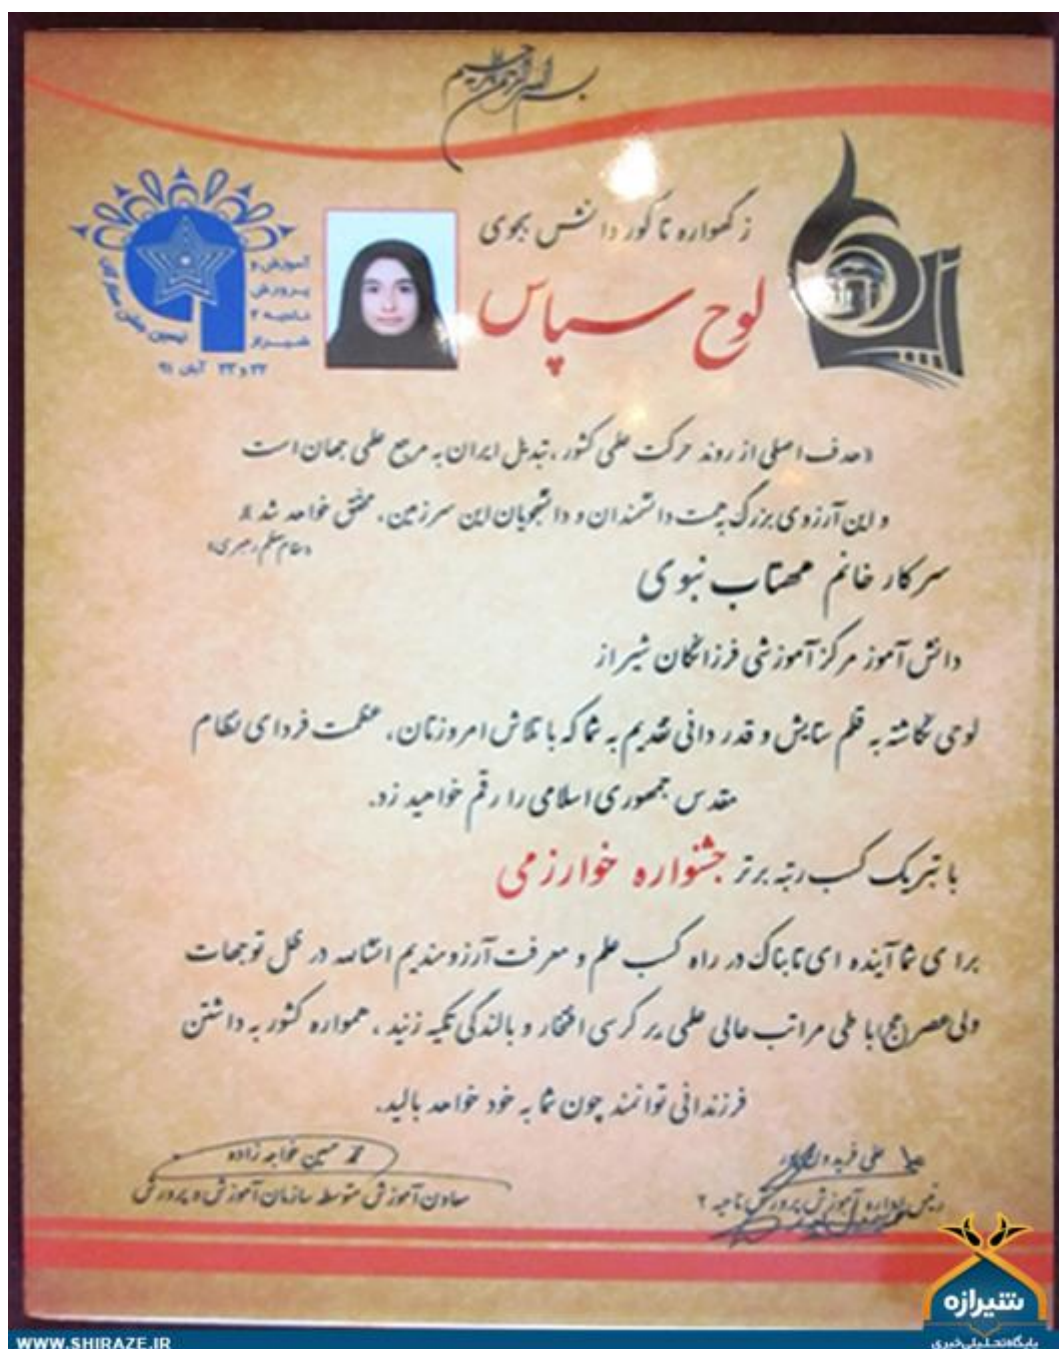 بسم الله الرحمن الرحیم
ز گهواره تا گور دانش بجوی
لوح سپاس
آموزش و
پرورش
ناحیه ۲
شیراز
۲۲ و ۲۳ آبان ۹۱
«هدف اصلی از روند حرکت علمی کشور، تبدیل ایران به مرجع علمی جهان است
و این آرزوی بزرگ به همت دانشمندان و دانشجویان این سرزمین، محقق خواهد شد.»
«مقام معظم رهبری»
سرکار خانم مهتاب نبوی
دانش آموز مرکز آموزشی فرزانگان شیراز
لوحی نگاشته به قلم ستایش و قدردانی تقدیم به شما که با تلاش امروزتان، عظمت فردای نظام
مقدس جمهوری اسلامی را رقم خواهید زد.
با تبریک کسب رتبه برتر جشنواره خوارزمی
برای شما آینده ای تابناک در راه کسب علم و معرفت آرزومندیم انشاالله در ظل توجهات
ولی عصر (عج) با طی مراتب عالی علمی بر کرسی افتخار و بالندگی تکیه زنید، همواره کشور به داشتن
فرزندانی توانمند چون شما به خود خواهد بالید.
علی فریدون
رئیس اداره آموزش پرورش ناحیه ۲
حسین خواجه زاده
معاون آموزش متوسطه سازمان آموزش و پرورش
شیرازه
پایگاه تحلیلی خبری
WWW.SHIRAZE.IR